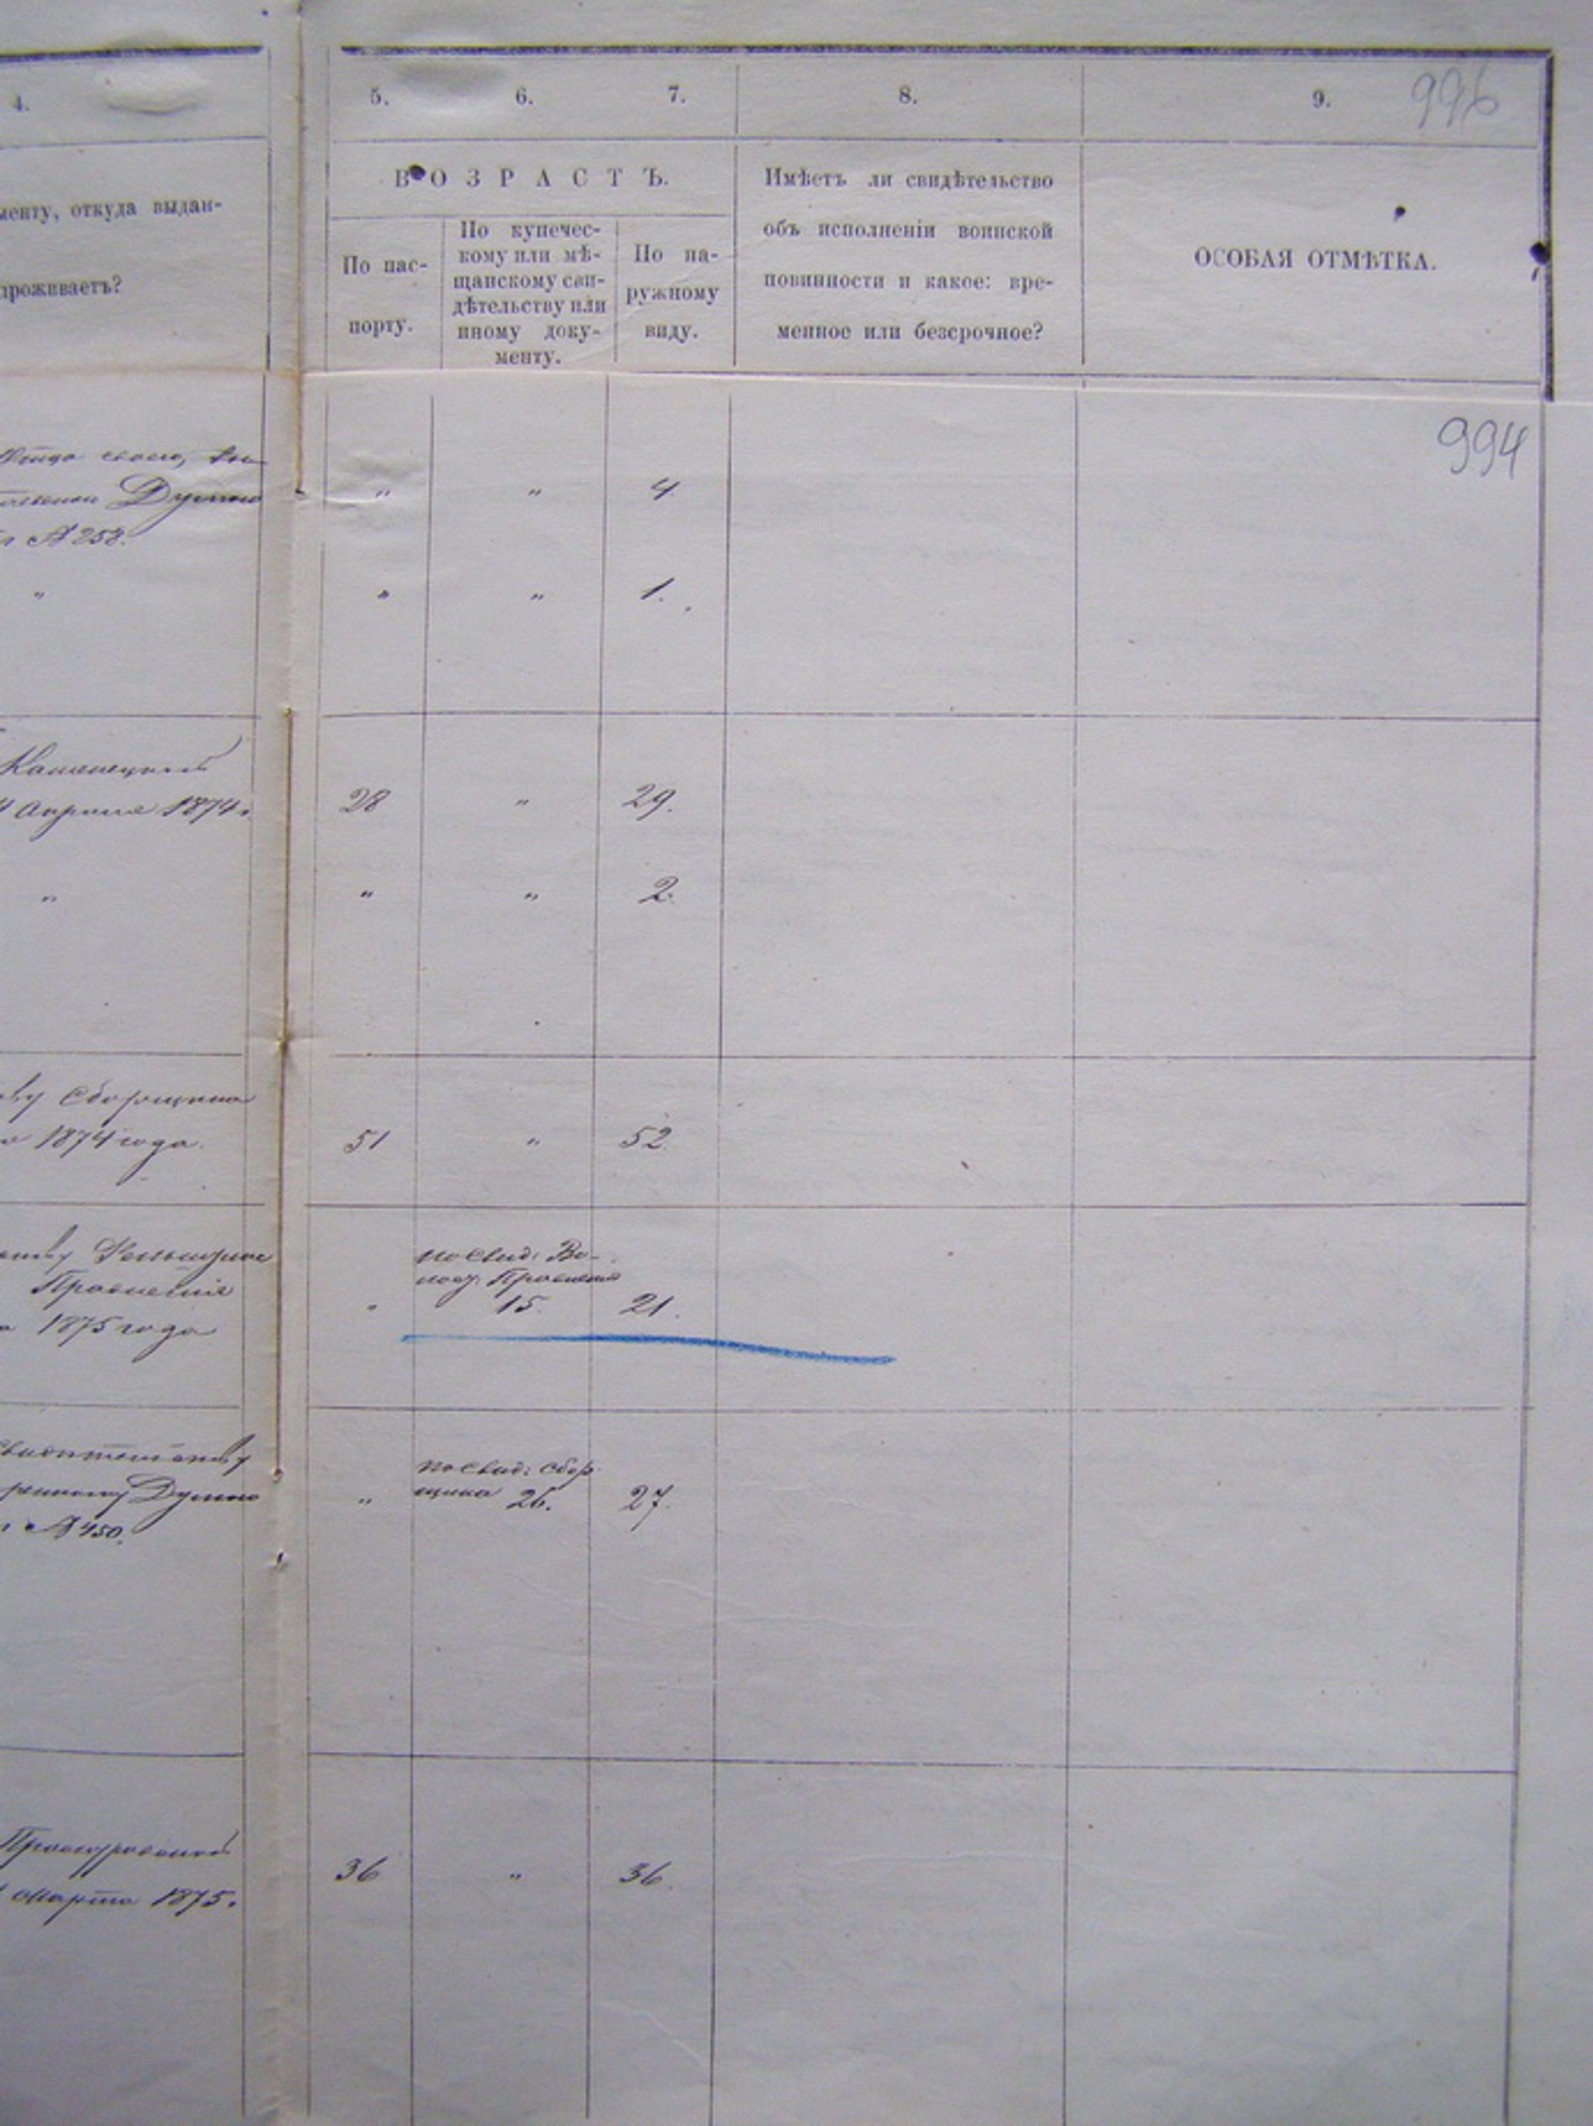 4.
5. 6. 7. 8. 9. 996
менту, откуда выдан-
проживаетъ?
ВОЗРАСТЪ.
По пас-
порту.
По купечес-
кому или мѣ-
щанскому сви-
дѣтельству или
иному доку-
менту.
По на-
ружному
виду.
Имѣетъ ли свидѣтельство
объ исполненіи воинской
повинности и какое: вре-
менное или безсрочное?
ОСОБАЯ ОТМѢТКА.
994
Отца своего,
Думою
№ 258.
" " 4
" " " 1.
Каменецкимъ
4 Апрѣля 1874 г.
28 " 29.
" " " 2.
Сборщика
1874 года.
51 " 52
Правленія
1875 года
" по свид: Во-
лос: Правленія
15. 21.
Думою
№ 450.
" по свид: сбор-
щика 26. 27.
Проскуровской
Марта 1875.
36 " 36.